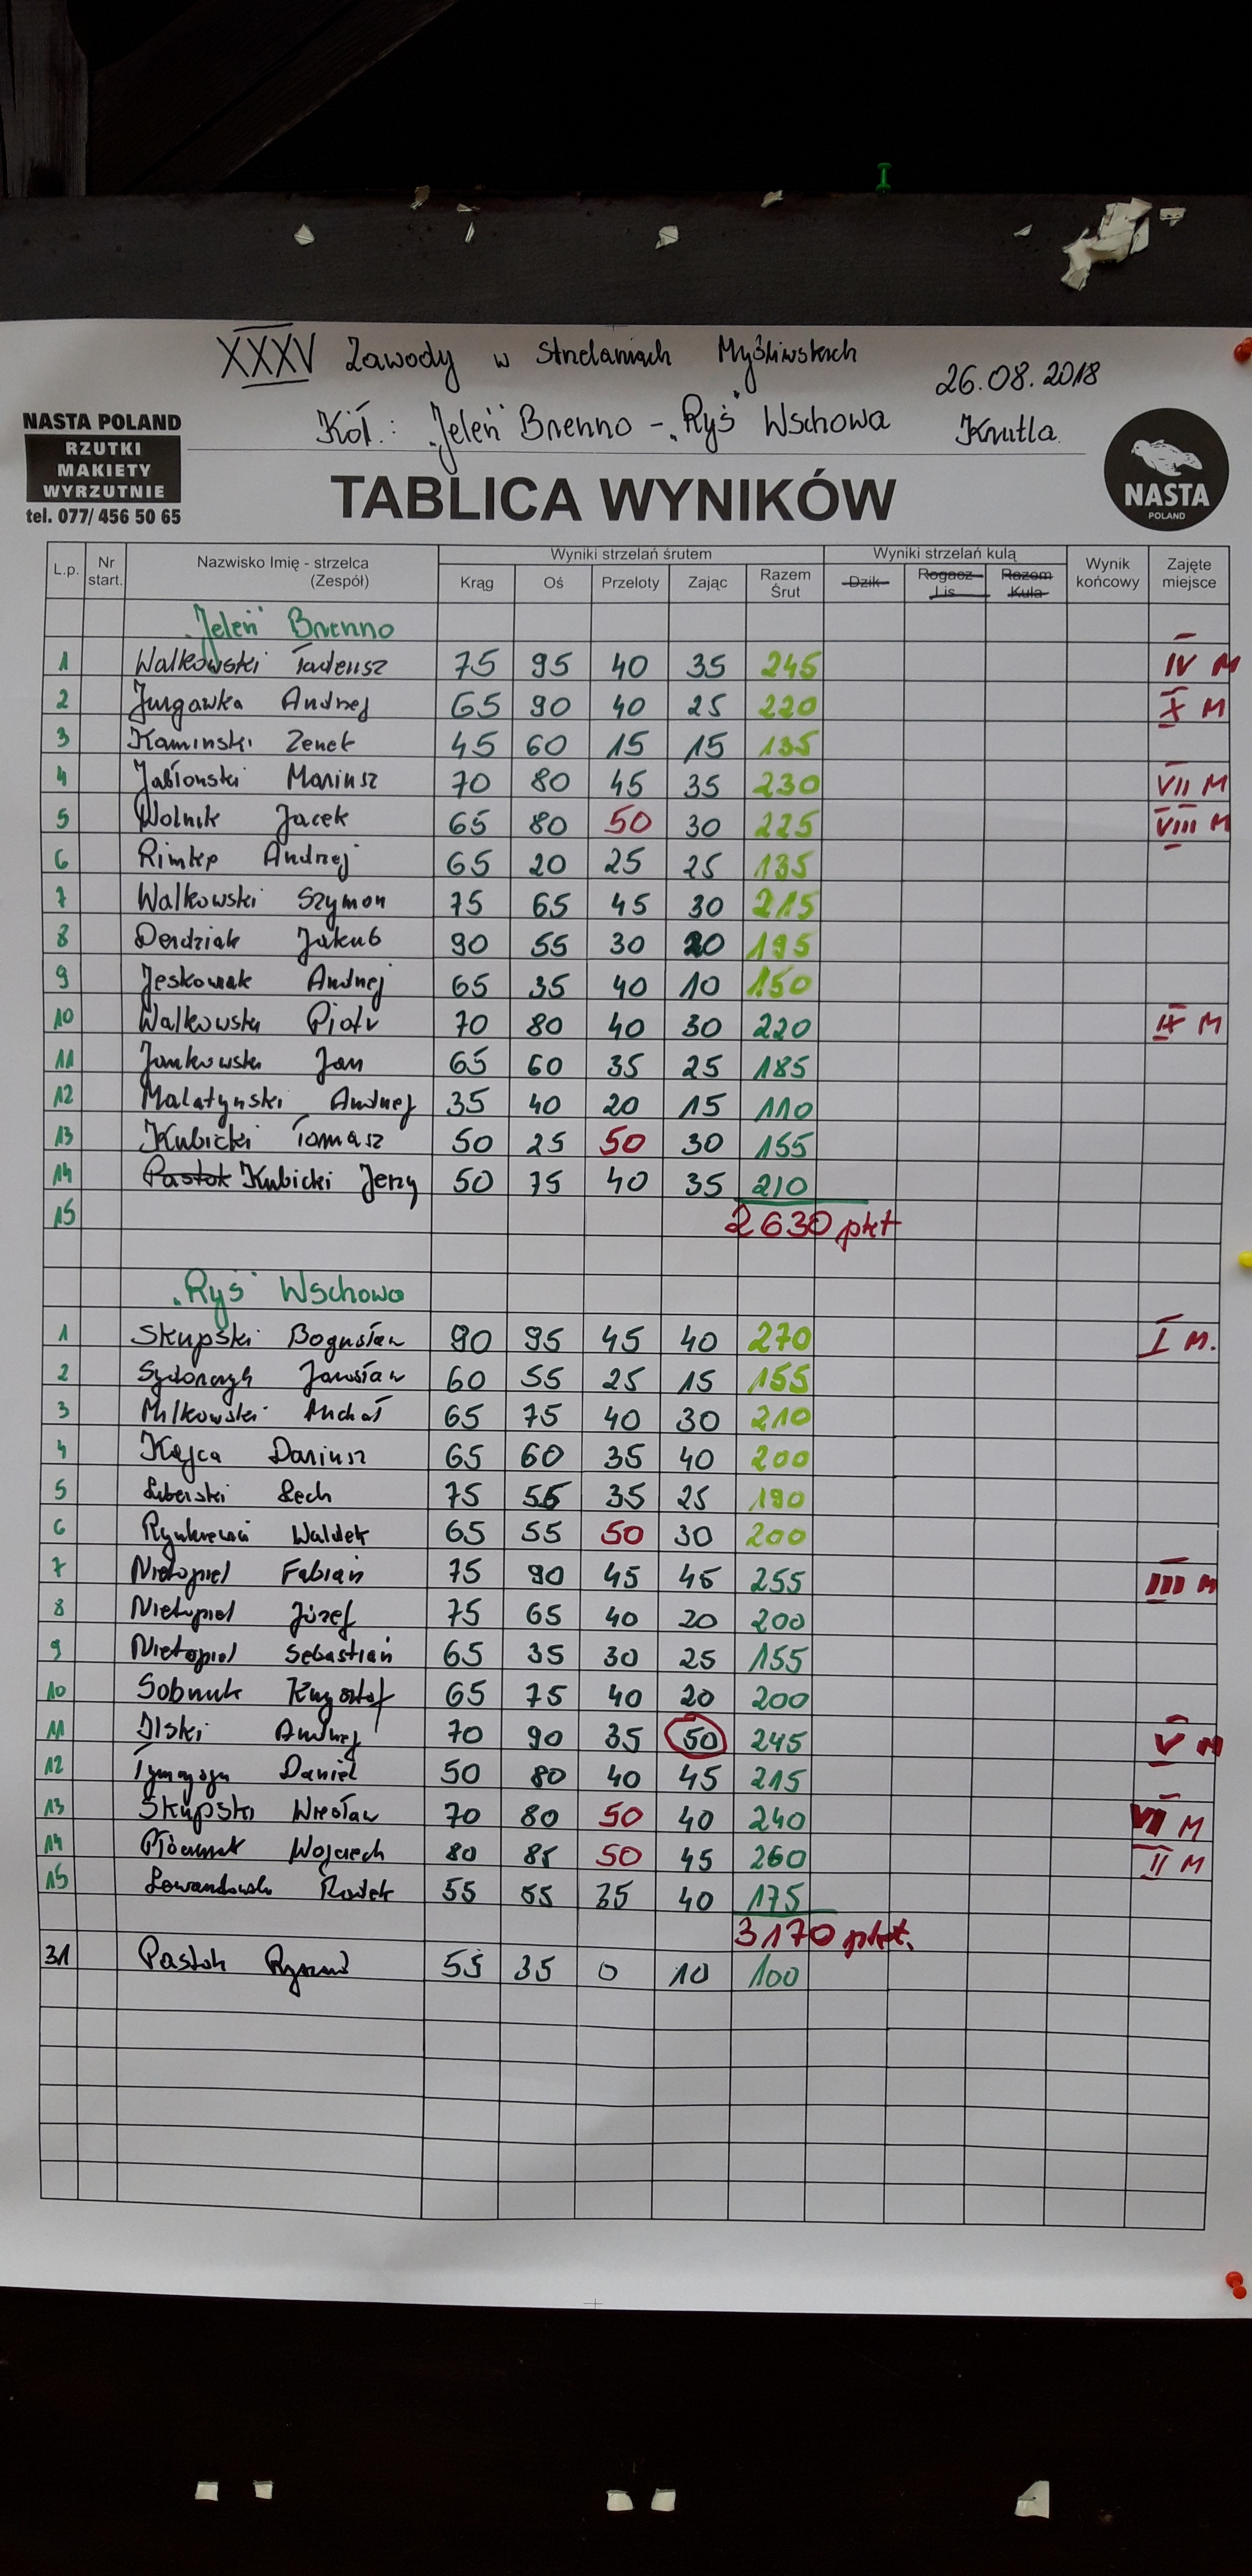 XXXV Zawody w Strzelaniach Myśliwskich
26.08.2018
Kół.: "Jeleń" Brenno - "Ryś" Wschowa Krutla
NASTA POLAND
RZUTKI
MAKIETY
WYRZUTNIE
tel. 077/ 456 50 65
NASTA
POLAND
TABLICA WYNIKÓW
L.p. Nr start. Nazwisko Imię - strzelca (Zespół) Wyniki strzelań śrutem Wyniki strzelań kulą Wynik końcowy Zajęte miejsce
Krąg Oś Przeloty Zając Razem Śrut Dzik Rogacz Lis Razem Kula
"Jeleń" Brenno
1 Walkowski Tadeusz 75 95 40 35 245 IV M
2 Jurgawka Andrzej 65 90 40 25 220 X M
3 Kaminski Zenek 45 60 15 15 135
4 Jabłonski Mariusz 70 80 45 35 230 VII M
5 Wolnik Jacek 65 80 50 30 225 VIII M
6 Andrzej 65 20 25 25 135
7 Walkowski Szymon 75 65 45 30 215
8 Derdziak Jakub 90 55 30 20 195
9 Jeskowiak Andrzej 65 35 40 10 150
10 Walkowski Piotr 70 80 40 30 220 IX M
11 Jankowski Jan 65 60 35 25 185
12 Malatynski Andrzej 35 40 20 15 110
13 Kubicki Tomasz 50 25 50 30 155
14 Pastok Kubicki Jerzy 50 75 40 35 210
15 2630 pkt
"Ryś" Wschowa
1 Skupski Bogusław 90 95 45 40 270 I M.
2 Jarosław 60 55 25 15 155
3 Milkowski Michał 65 75 40 30 210
4 Kajca Dariusz 65 60 35 40 200
5 Luberski Lech 75 55 35 25 190
6 Waldek 65 55 50 30 200
7 Nietopiel Fabian 75 90 45 45 255 III M
8 Nietopiel Józef 75 65 40 20 200
9 Nietopiel Sebastian 65 35 30 25 155
10 Krzysztof 65 75 40 20 200
11 Ilski Andrzej 70 90 35 50 245 V M
12 Daniel 50 80 40 45 215
13 Skupski Wiesław 70 80 50 40 240 VI M
14 Wojciech 80 85 50 45 260 II M
15 Lewandowski Radek 55 55 35 40 175
3170 pkt.
31 Pastok 55 35 0 10 100